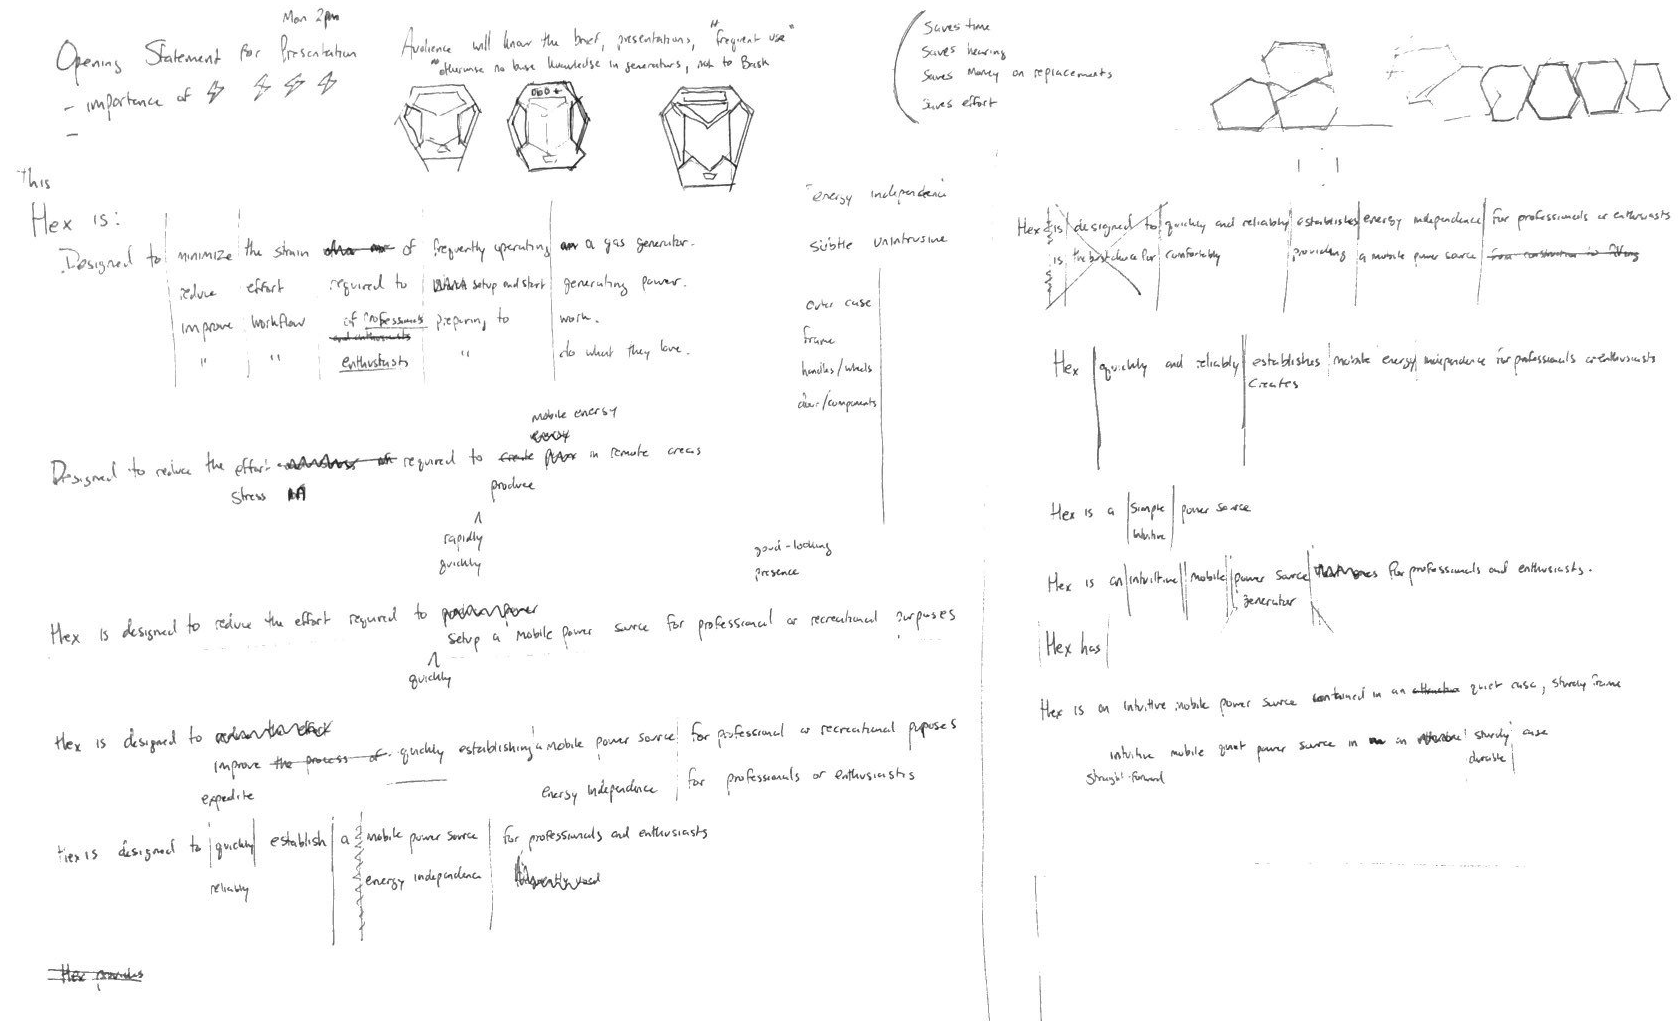 Mon 2pm
Opening Statement for Presentation
- importance of
-
Audience will know the brief, presentations, "frequent use"
otherwise no base knowledge in generators, not to Bash
Saves time
Saves hearing
Saves Money on replacements
Saves effort
This
Hex is:
Designed to minimize the strain of frequently operating a gas generator.
reduce effort required to setup and start generating power.
improve workflow of professionals preparing to work.
and enthusiasts
" " enthusiasts " do what they love.
energy independence
subtle unintrusive
outer case
frame
handles/wheels
door/components
mobile energy
energy
Designed to reduce the effort required to create power in remote areas
stress
produce
rapidly
quickly
good-looking
presence
Hex is designed to reduce the effort required to
setup a mobile power source for professional or recreational purposes
quickly
Hex is designed to
improve the process of quickly establishing a mobile power source for professional or recreational puposes
expedite
energy independence for professionals or enthusiastis
Hex is designed to quickly establish a mobile power source for professionals and enthusiasts
reliably
energy independence
Hex provides
Hex is designed to quickly and reliably establishes energy independence for professionals or enthusiasts
is the best choice for comfortably providing a mobile power source
Hex quickly and reliably establishes mobile energy independence for professionals or enthusiasts
Creates
Hex is a simple power source
intuitive
Hex is an intuitive mobile power source for professionals and enthusiasts.
generator
Hex has
Hex is an intuitive mobile power source contained in an quiet case, sturdy frame
intuitive mobile quiet power source in an sturdy case
straight-forward
durable